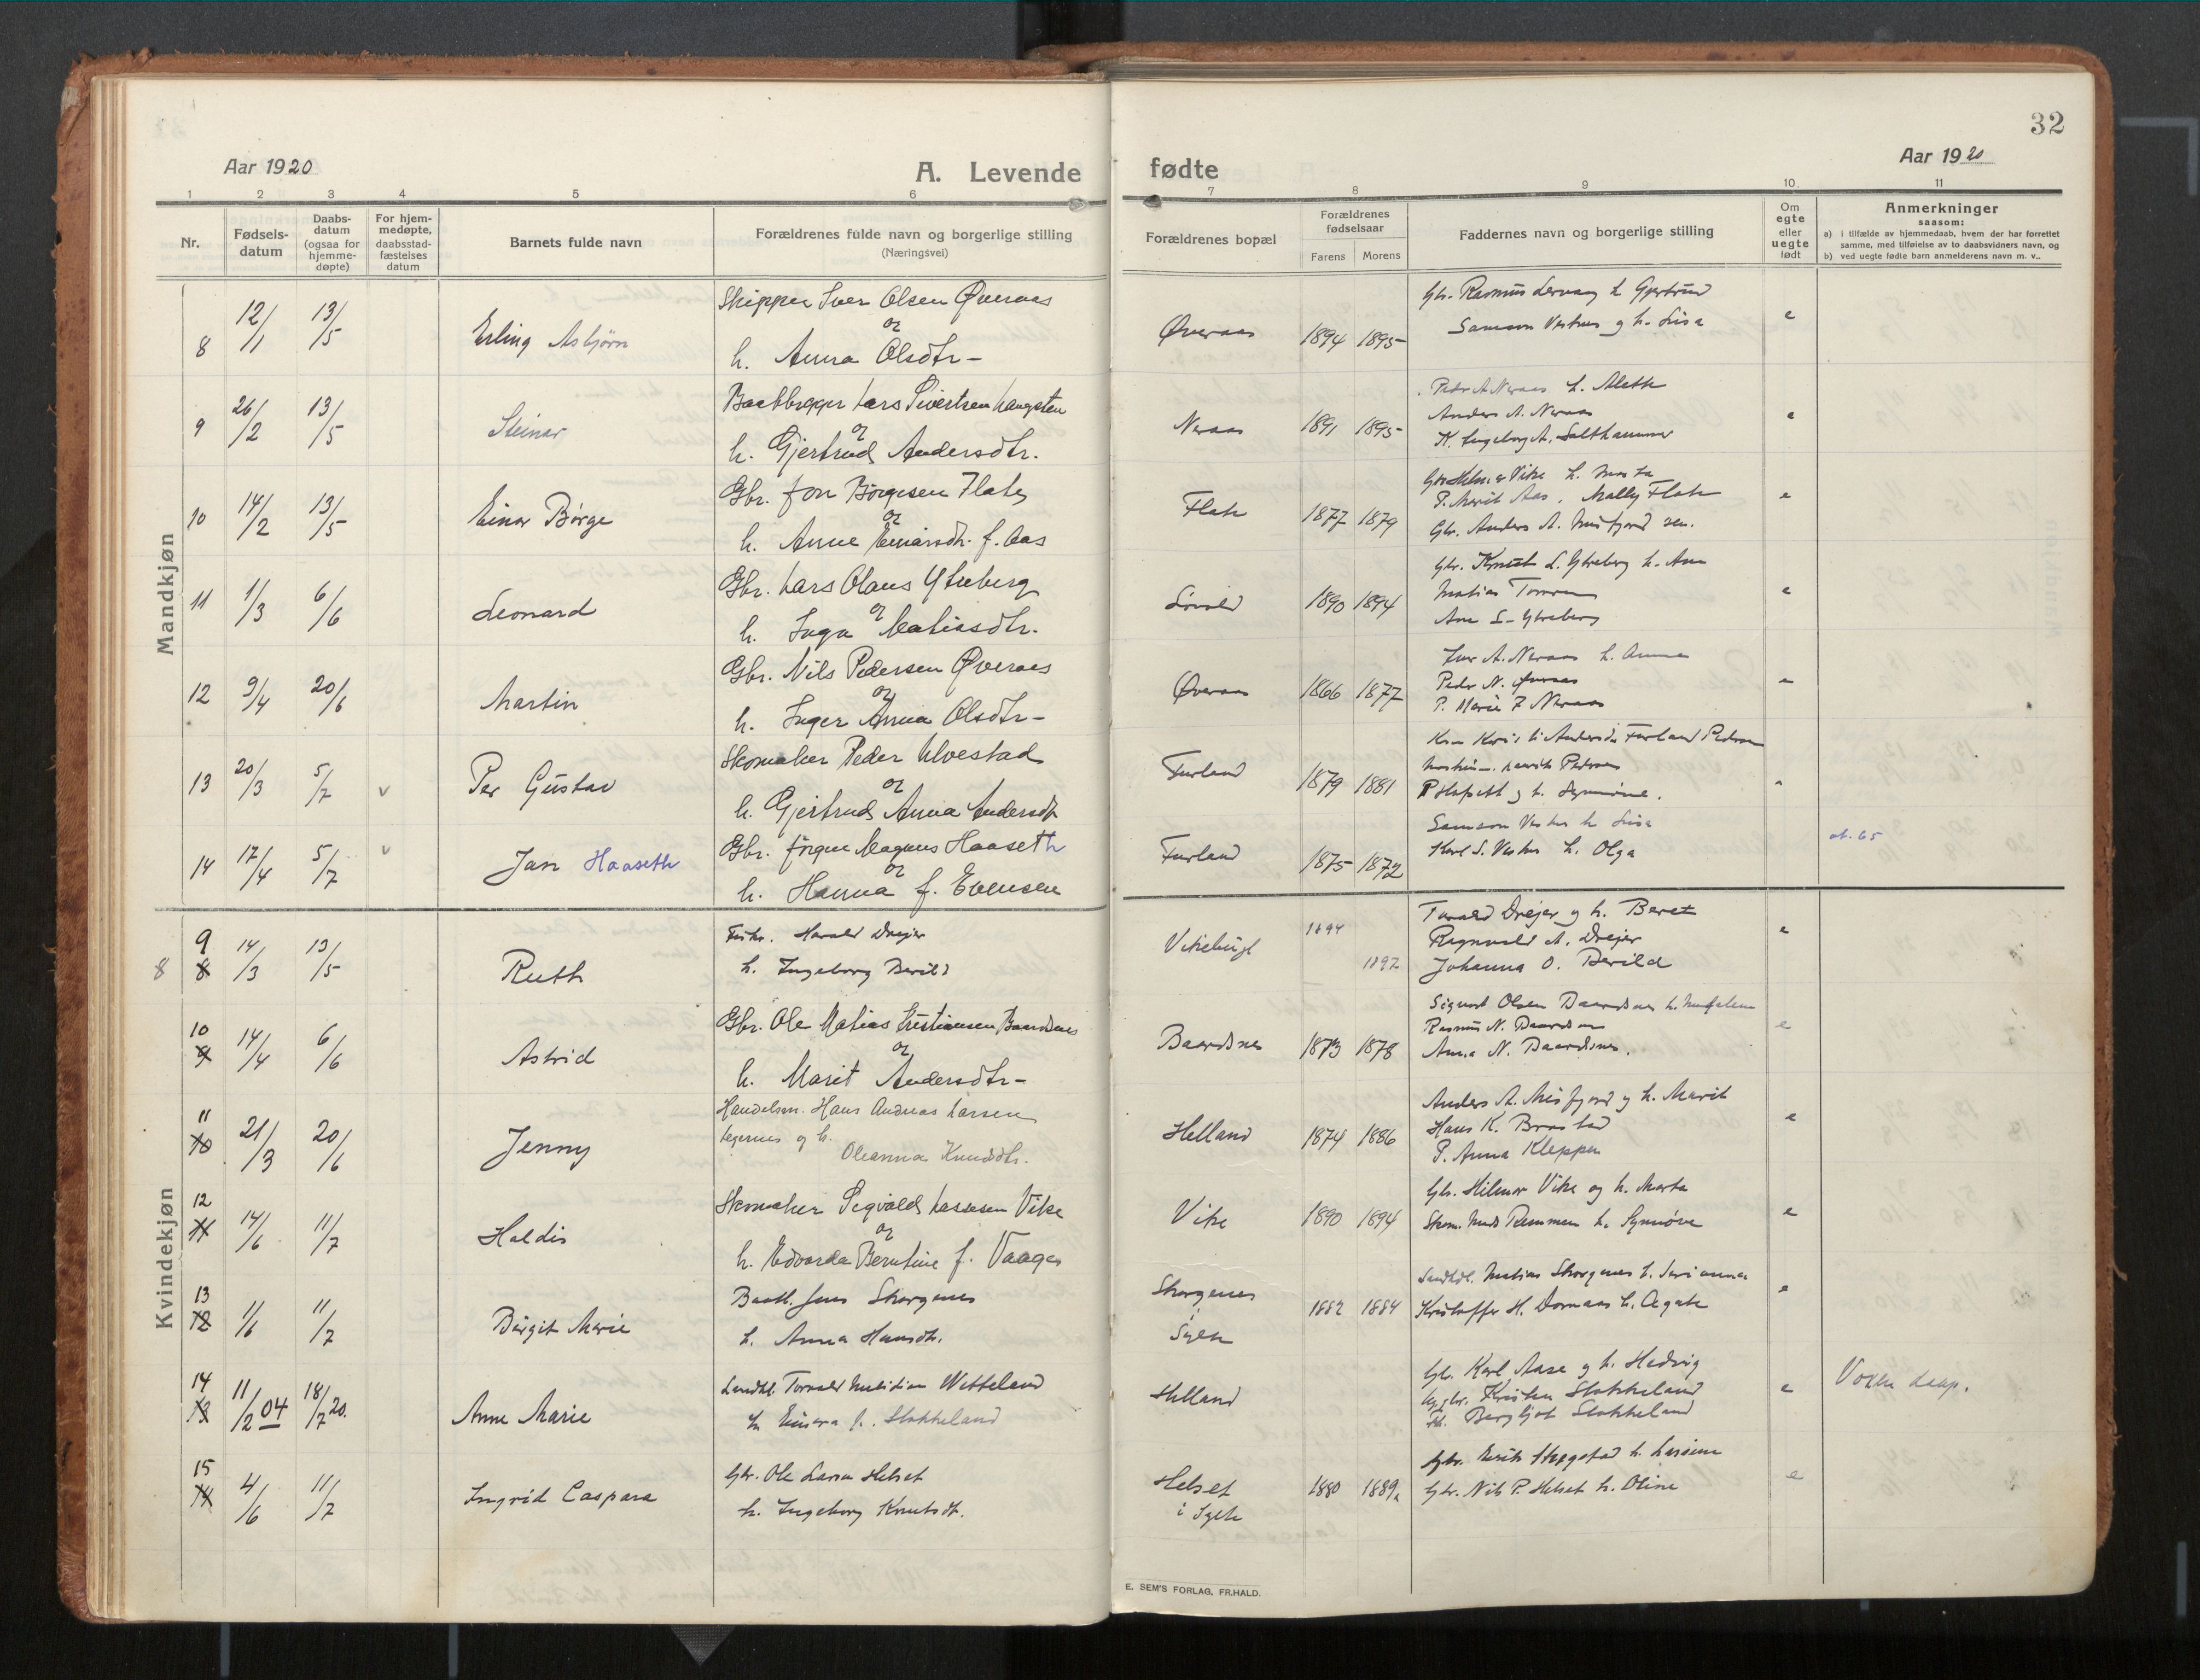 32
Aar 1920
A. Levende
fødte
Aar 1920
1 2 3 4 5 6 7 8 9 10 11
Nr.
Fødsels-
datum
Daabs-
datum
(ogsaa for
hjemme-
døpte)
For hjem-
medøpte,
daabsstad-
fæstelses
datum
Barnets fulde navn
Forældrenes fulde navn og borgerlige stilling
(Næringsvei)
Forældrenes bopæl
Forældrenes
fødselsaar
Farens Morens
Faddernes navn og borgerlige stilling
Om
egte
eller
uegte
født
Anmerkninger
saasom:
a) i tilfælde av hjemmedaab, hvem der har forrettet
samme, med tilføielse av to daabsvidners navn, og
b) ved uegte fødte barn anmelderens navn m. v..
Mandkjøn
8 12/1 13/5 Erling Asbjørn
Skipper Iver Olsen Øveraas
og
h. Anna Olsdtr-
Øveraas 1894 1895
Gbr. Rasmus h. Gjertrud
Samson Vestnes og h. Lisa
e
9 26/2 13/5 Steinar
Lars Sivertsen
og
h. Gjertrud Andersdtr.
Neraas 1891 1895
Peder A Neraas h. Alette
Anders A. Neraas
K. Ingeborg A. Salthammer
e
10 14/2 13/5 Einar Børge
Gbr. Jon Børgesen Flate
og
h. Anne Einarsdtr. f. Aas
Flate 1877 1879
Vike h.
P. Marit Aas. Mally Flate
Gbr. Anders A. Misfjord sen.
e
11 1/3 6/6 Leonard
Gbr. Lars Olaus Ytreberg
og
h. Inga Matiasdtr.
1890 1894
Gbr. Knut L. Ytreberg h. Ane
Matias
Ane L. Ytreberg
e
12 9/4 20/6 Martin
Gbr. Nils Pedersen Øveraas
og
h. Inger Anna Olsdtr-
Øveraas 1866 1877
Iver A. Neraas h. Anna
Peder N. Øveraas
P. Marie Neraas
e
13 20/3 5/7 v Per Gustav
Skomaker Peder Ulvestad
og
h. Gjertrud Anna Andersdtr
Furland 1879 1881
Furland Pedersen
Pedersen
og h. Synnøve.
14 17/4 5/7 v Jan Haaseth
Gbr. Jørgen Magnus Haaseth
og
h. Hanna f. Evensen
Furland 1875 1872
Samson h Lisa
Karl S. h. Olga
Kvindekjøn
8
9 8 14/3 13/5 Ruth
Fisker. Harald Drejer
h. Ingeborg Berild
Vikebugt 1894 1892
Torald Drejer og h. Beret
Ragnvald A. Drejer
Johanna O. Berild
e
10 9 14/4 6/6 Astrid
Gbr. Ole Matias Kristiansen Baardsnes
og
h. Marit Andersdtr-
Baardsnes 1873 1878
Sigurd Olsen Baardsnes h.
Rasmus N. Baardsnes
Anna N. Baardsnes.
e
11 10 21/3 20/6 Jenny
Handelsm. Hans Andreas Larsen
og h.
Oleanna Knudsdtr.
Helland 1874 1886
Anders A. Misfjord og h. Marit
Hans K. Brastad
P. Anna Kleppen
e
12 11 14/6 11/7 Haldis
Skomaker Sigvald Lassesen Vike
og
h. Edvarda Berntine f. Vaagen
Vike 1890 1894
Gbr. Hilmar Vike og h. Marta
Skom. Remmen h. Synnøve
e
13 12 1/6 11/7 Birgit Marie
Jens Skorgenes
h. Anna Hansdtr.
Skorgenes
i
Sylte
1882 1884
Landhdl. Matias Skorgenes h.
Kristoffer H. Dornaas h. Agate
e
14 13 11/2 04 18/7 20. Anne Marie
Landhdl. Torvald Witteland
h. Einara f. Stokkeland
Helland
Gbr. Karl Aase og h. Hedvig
Kristen Stokkeland
Bergljot Stokkeland
e
Voxen daap.
15 14 4/6 11/7 Ingrid Caspara
Gbr. Ole Larsen Helset
h. Ingeborg Knutsdtr.
Helset
i Sylte
1880 1889
Gbr.
Gbr. Nils P. Helset h. Oline
e
E. SEM'S FORLAG, FR.HALD.